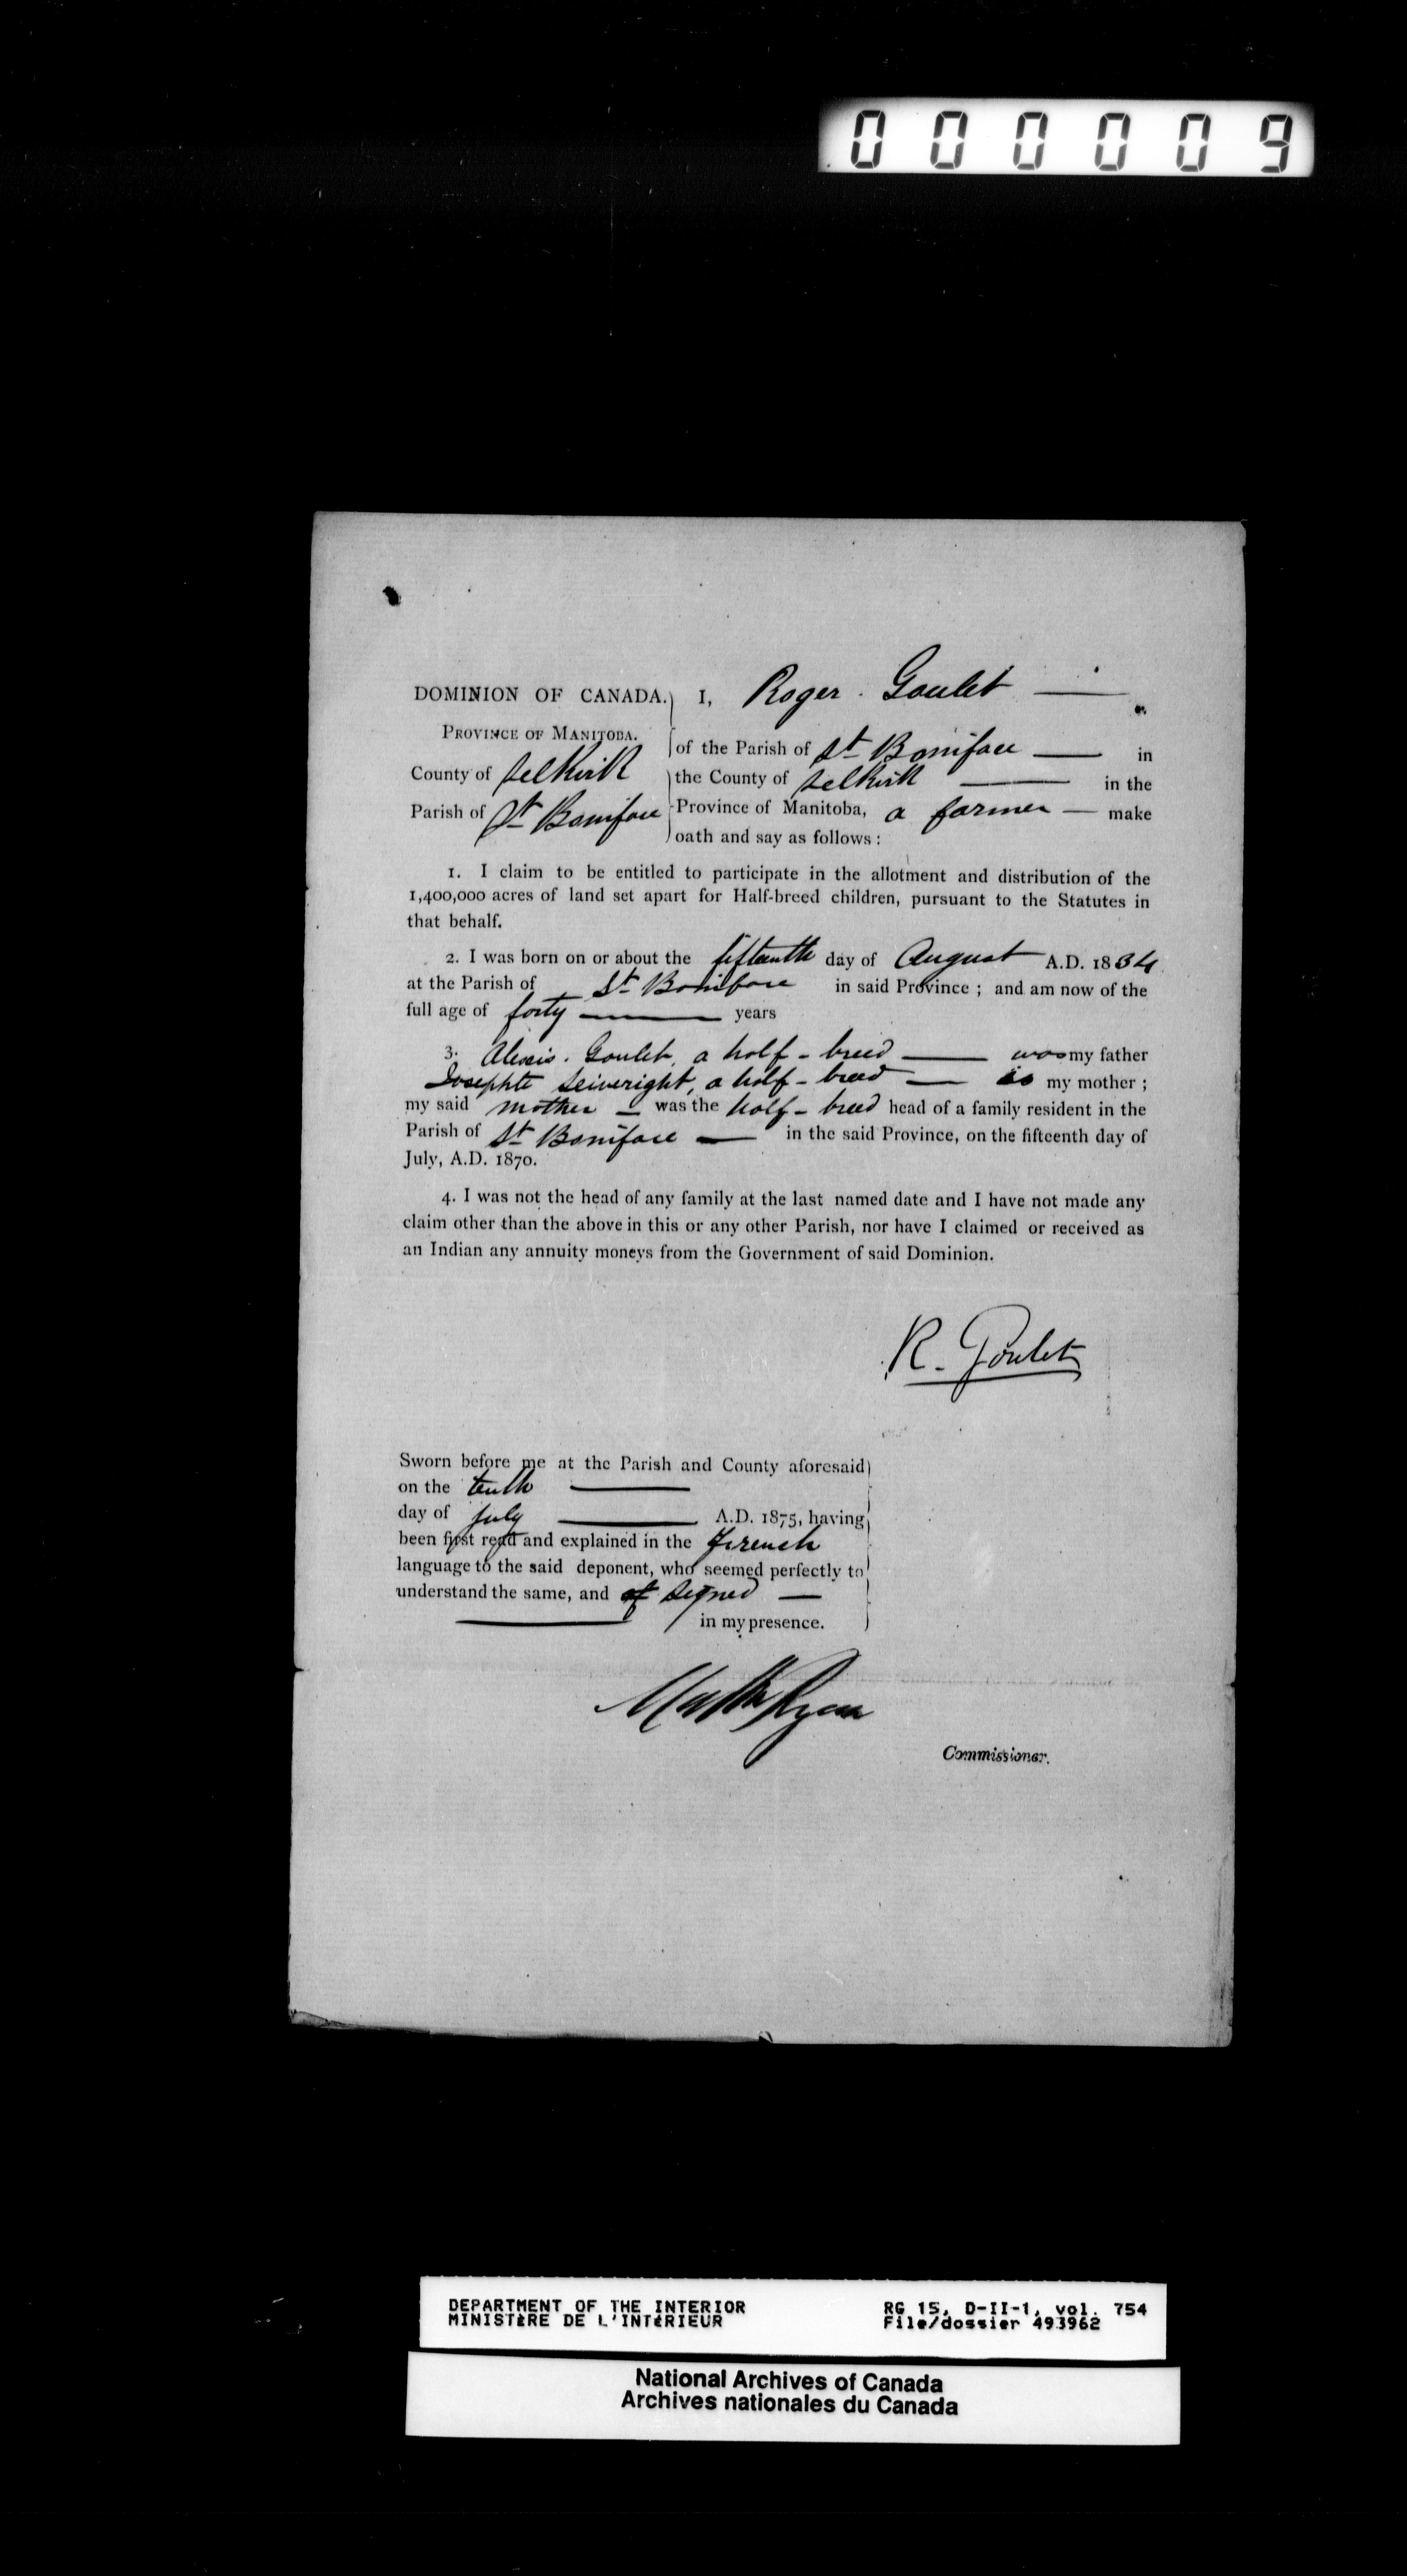 000009
DOMINION OF CANADA. I, Roger Goulet
PROVINCE OF MANITOBA.
of the Parish of St Boniface in
County of Selkirk
the County of Selkirk in the
Parish of St Boniface
Province of Manitoba, a farmer make
oath and say as follows :
1. I claim to be entitled to participate in the allotment and distribution of the
1,400,000 acres of land set apart for Half-breed children, pursuant to the Statutes in
that behalf.
2. I was born on or about the fifteenth day of August A.D. 1834
at the Parish of St Boniface in said Province ; and am now of the
full age of forty years
3. Alexis Goulet, a half-breed was my father
Josephte Seiveright, a half-breed is my mother ;
my said mother was the half-breed head of a family resident in the
Parish of St Boniface in the said Province, on the fifteenth day of
July, A.D. 1870.
4. I was not the head of any family at the last named date and I have not made any
claim other than the above in this or any other Parish, nor have I claimed or received as
an Indian any annuity moneys from the Government of said Dominion.
R. Goulet
Sworn before me at the Parish and County aforesaid
on the tenth
day of July A.D. 1875, having
been first read and explained in the French
language to the said deponent, who seemed perfectly to
understand the same, and signed
in my presence.
Matth Ryan
Commissioner.
DEPARTMENT OF THE INTERIOR RG 15, D-II-1, vol. 754
MINISTÈRE DE L'INTÉRIEUR File/dossier 493962
National Archives of Canada
Archives nationales du Canada